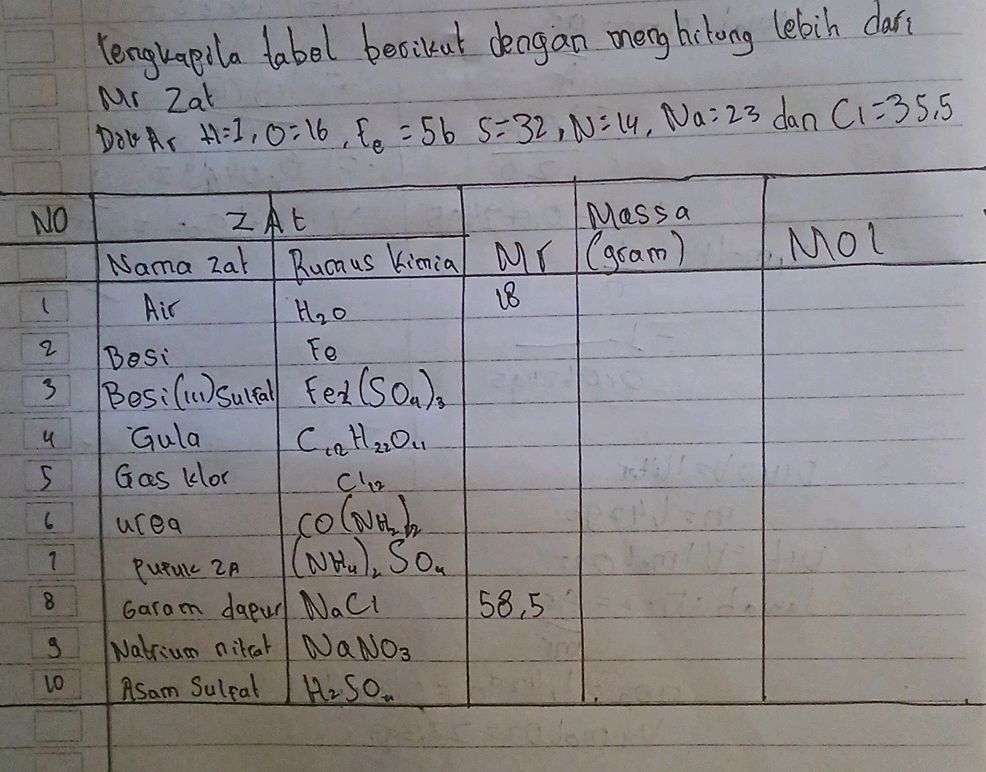 lengkapila tabel berikut dengan menghitung lebih dari
Mr Zat
Ar H=1, O=16, Fe = 56 S=32, N=14, Na=23 dan Cl=35,5
NO ZAt Mr Massa (gram) Mol
Nama zat Rumus kimia
1 Air H₂O 18
2 Besi Fe
3 Besi(III) Sulfat Fe2(SO₄)₃
4 Gula C₁₂H₂₂O₁₁
5 Gas klor Cl₂
6 urea CO(NH₂)₂
7 Pupuk ZA (NH₄)₂SO₄
8 Garam dapur NaCl 58,5
9 Natrium nitrat NaNO₃
10 Asam Sulfat H₂SO₄